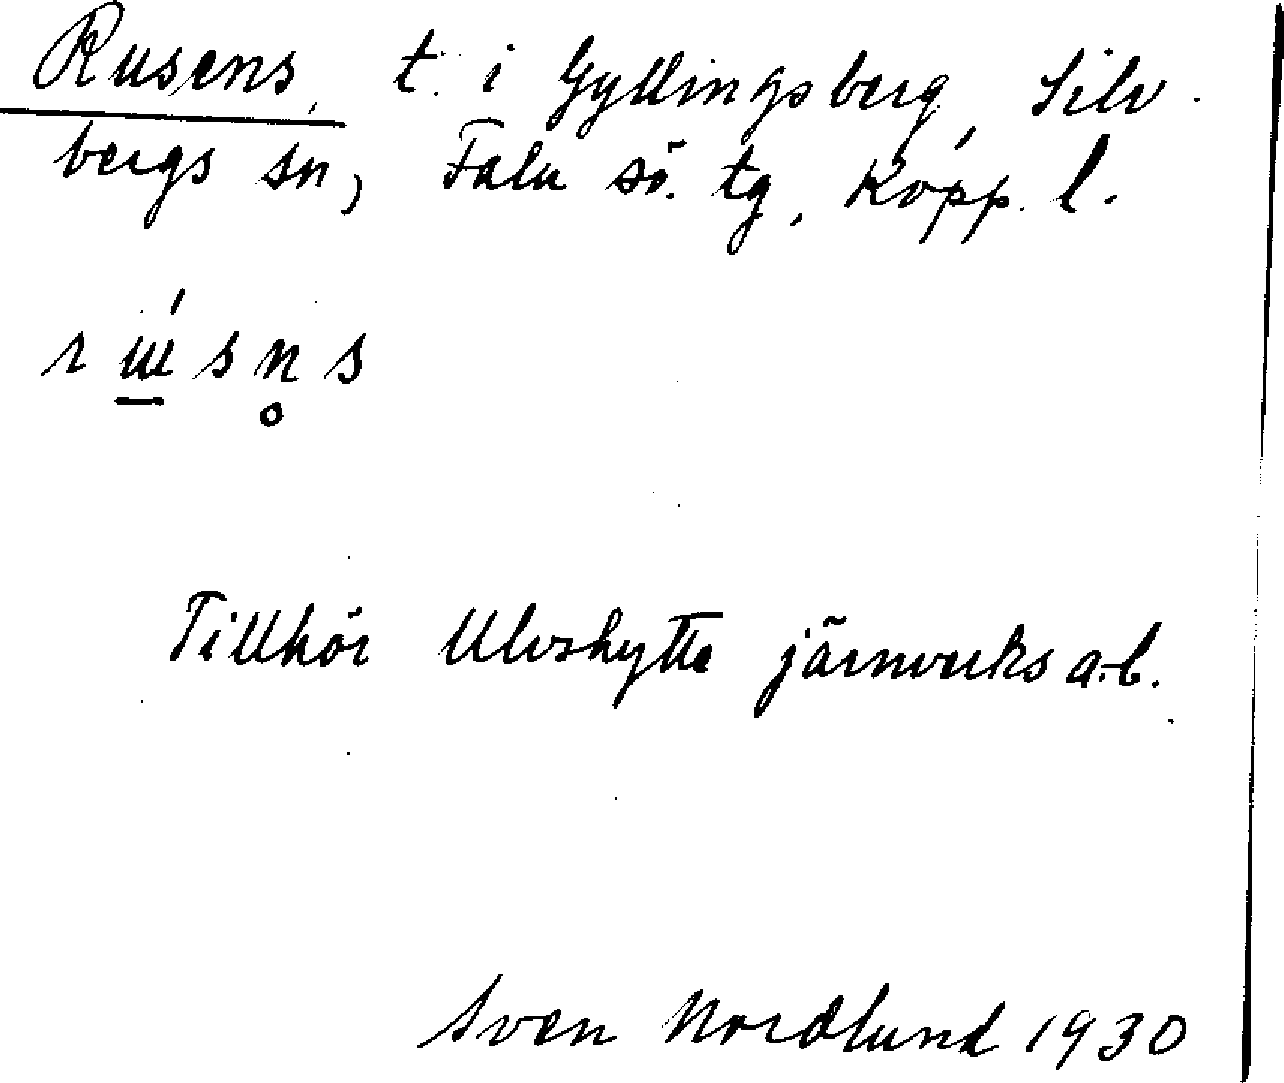 Rusens, t. i Gyllingsberg, Silv
bergs sn, Falu sö. tg, Kopp. l.
r ɯ́ s n̥ s
Tillhör Ulvshytte järnverks a.-b.
Sven Nordlund 1930